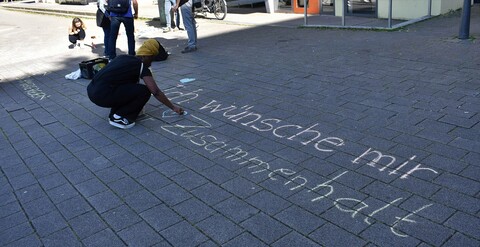 Ich wünsche mir
Zusammenhalt